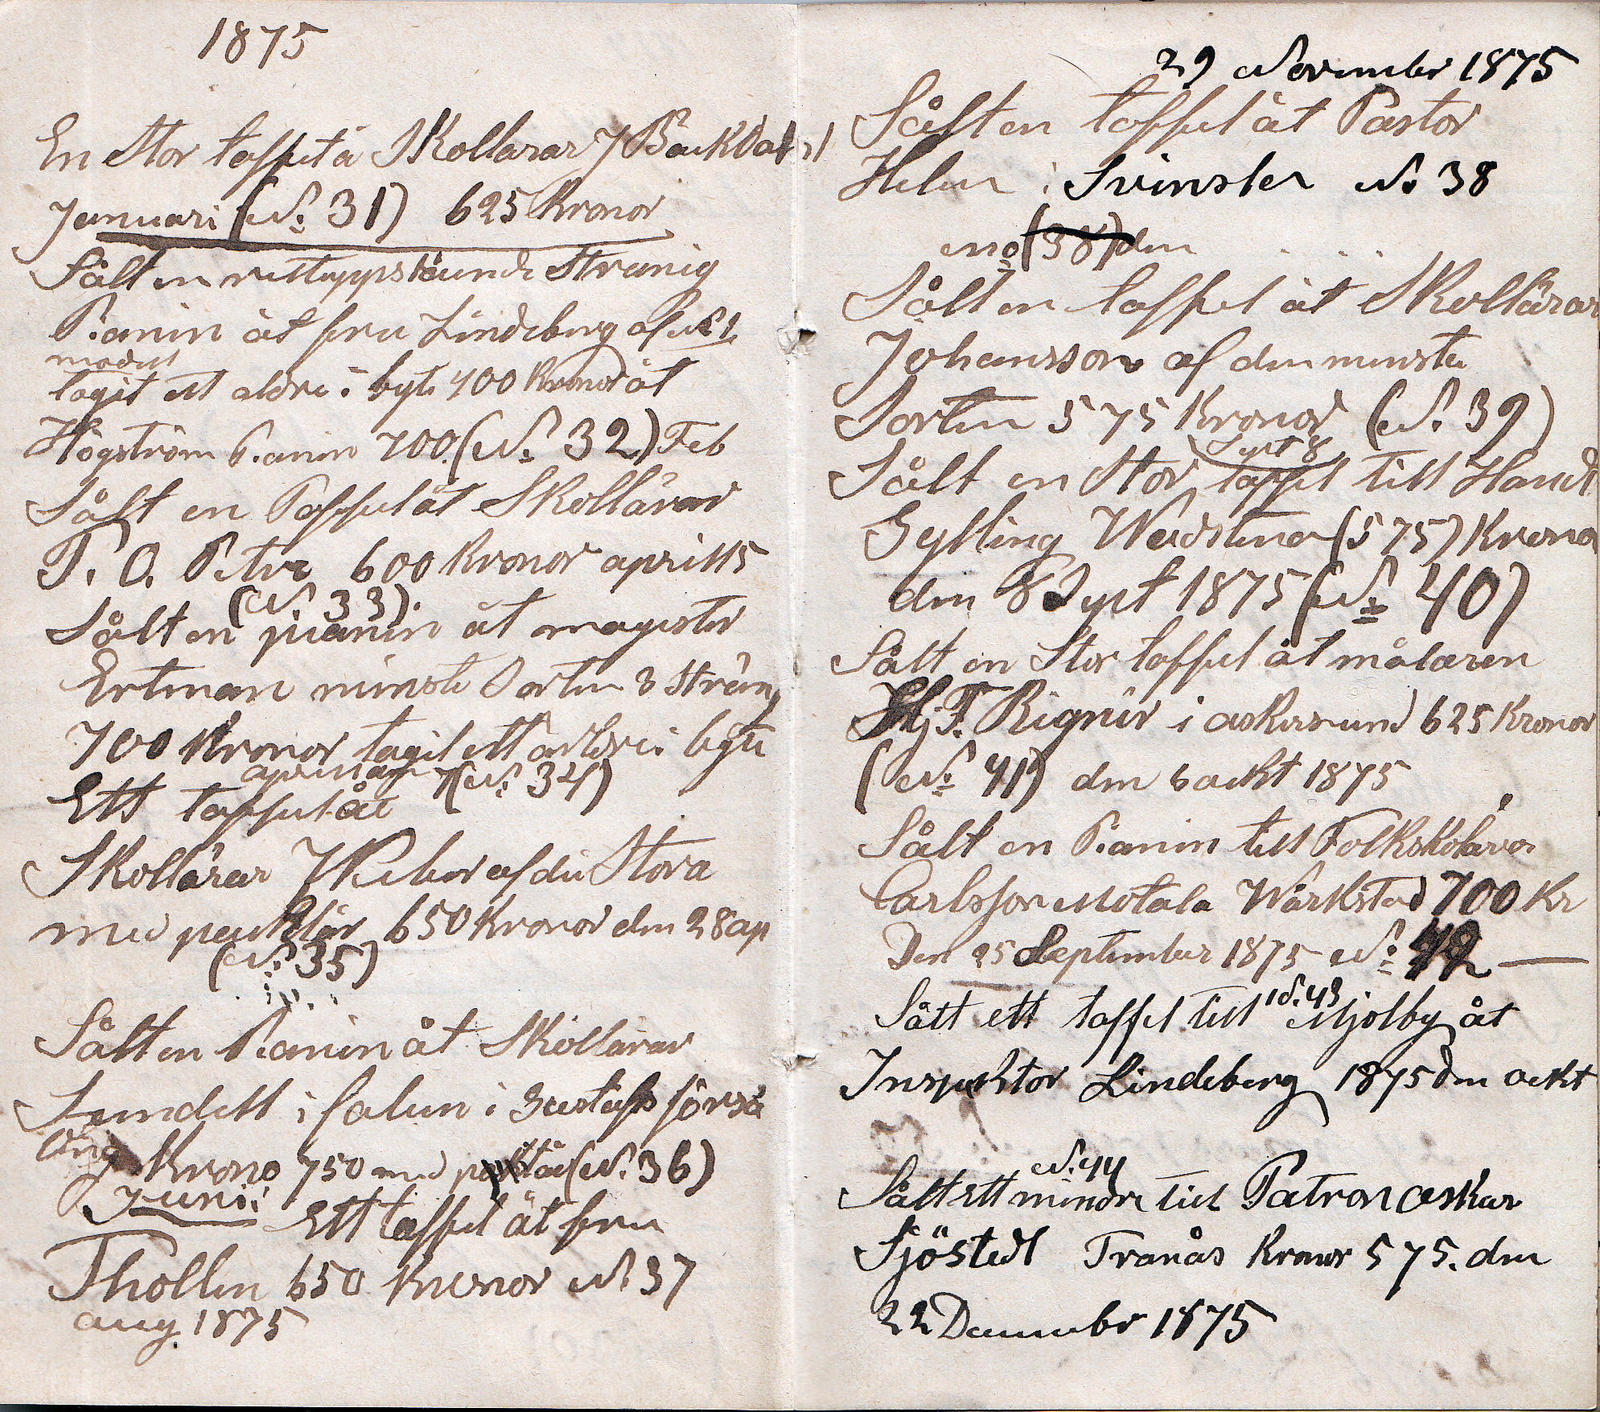 1875
En Stor taffel å Skollärar J Backdal
Januari (No. 31) 625 Kronor
Sålt en rettuppstäunde Strenig
Pianin åt fru Lindeberg af
modell
tagit ett äldre i byte 400 Kronor åt
Högström Pianin 700 (No. 32) Feb
Sålt en Taffel åt Skollärar
P. O. Petre 600 Kronor april 15
(No. 33).
Sålt en pianin åt magister
Ertman minste Sorten 3 Sträng
700 Kronor tagit ett äldre i byte
(No. 34)
Ett taffel åt
Skollärar af die Stora
med 650 Kronor den 28 ap
(No. 35)
Sålt en Pianin åt Skollärar
Lundell i falun i Gustafs försa
Krono 750 med (No. 36)
Juni Ett taffel åt fru
Thollin 650 Kronor No 37
aug. 1875
29 November 1875
Sålt en taffel åt Pastor
Helin i No 38
eno (38) den
Sålt en taffel åt Skollärar
Johansson af den minsta
Sorten 575 Kronor (No. 39)
Sept 8
Sålt en Stor taffel till Handl
Gylling Wadstena (575) Krono
den 8 Sept 1875 (No. 40)
Sålt en Stor taffel åt målaren
Hj. F. Rignér i askersund 625 Kronor
(No. 41) den 6 ackt 1875
Sålt en Pianin till Folkskolärar
Carlsson Motala Wärkstad 700 Kr
Den 25 September 1875 No. 42
Sått ett taffel till No. 43 Mjolby åt
Inspektor Lindeberg 1875 den ockt
No. 44
Sålt ett mindre till Patron Oskar
Sjöstedt Tranås Kronor 575. den
22 Decembr 1875